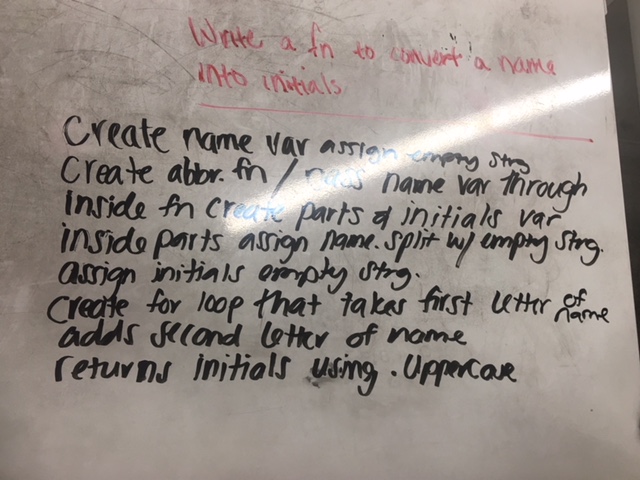 Write a fn to convert a name
into initials
Create name var assign empty strg
Create abbr. fn / pass name var through
inside fn create parts & initials var
inside parts assign name.split w/ empty strg.
assign initials empty strg.
create for loop that takes first letter of name
adds second letter of name
returns initials using .Uppercase